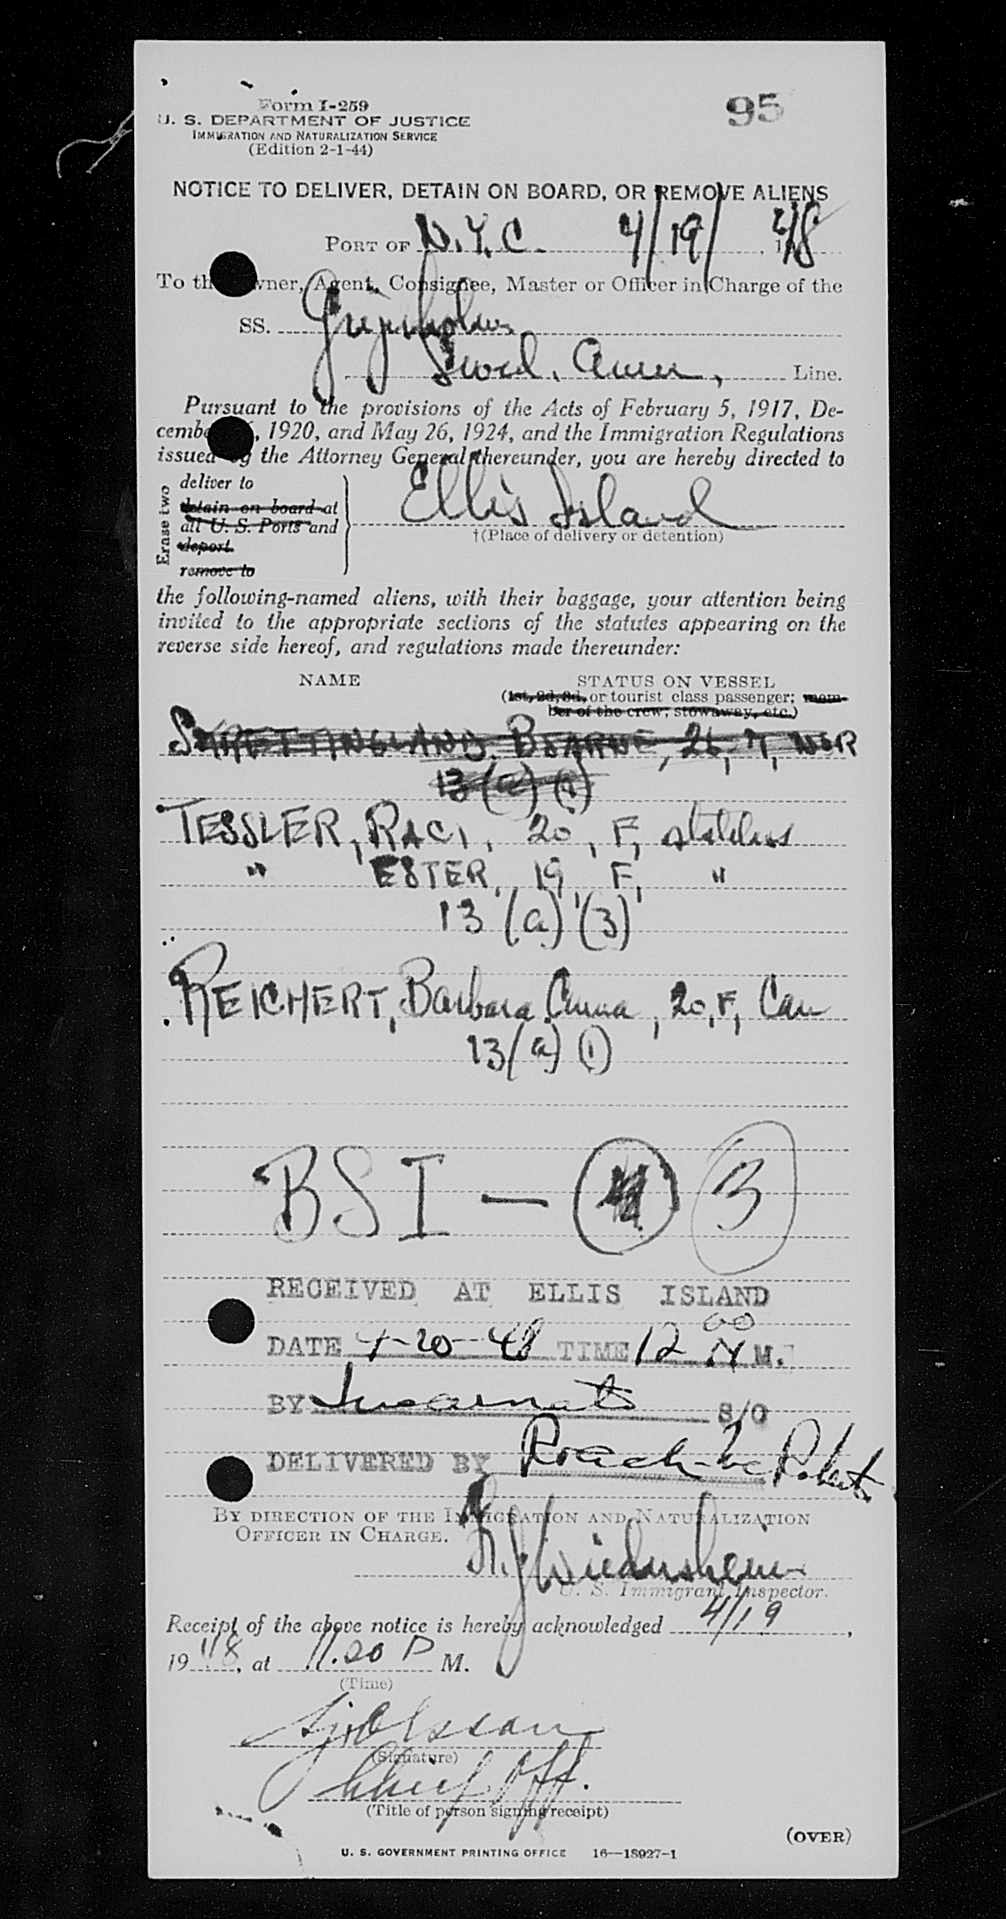 Form I-259
U. S. DEPARTMENT OF JUSTICE
IMMIGRATION AND NATURALIZATION SERVICE
(Edition 2-1-44)
95
NOTICE TO DELIVER, DETAIN ON BOARD, OR REMOVE ALIENS
PORT OF N.Y.C. 4/19/, 48
To the Owner, Agent, Consignee, Master or Officer in Charge of the
SS. Gripsholm
Swed. Amer, Line.
Pursuant to the provisions of the Acts of February 5, 1917, De-
cember , 1920, and May 26, 1924, and the Immigration Regulations
issued by the Attorney General thereunder, you are hereby directed to
Erase two
deliver to
detain on board at
all U. S. Ports and
deport.
remove to
Ellis Island
†(Place of delivery or detention)
the following-named aliens, with their baggage, your attention being
invited to the appropriate sections of the statutes appearing on the
reverse side hereof, and regulations made thereunder:
NAME STATUS ON VESSEL
(1st, 2d, 3d, or tourist class passenger; mem-
ber of the crew; stowaway, etc.)
BJARNE, 26, M, NOR
13 (a) (1)
TESSLER, RACI, 20, F, stateless
" ESTER, 19, F, "
13 (a) (3)
REICHERT, Barbara Anna, 20, F, Can
13 (a) (1)
BSI — 4 3
RECEIVED AT ELLIS ISLAND
DATE 4-20-48 TIME 12 00 N M.
BY Incarnato S/O
DELIVERED BY Roach Roberts
BY DIRECTION OF THE IMMIGRATION AND NATURALIZATION
OFFICER IN CHARGE.
Wiedersheim
U. S. Immigrant Inspector.
Receipt of the above notice is hereby acknowledged 4/19,
19 48, at 11.20 P M.
(Time)
Olsson
(Signature)
Chief Off.
(Title of person signing receipt)
(OVER)
U. S. GOVERNMENT PRINTING OFFICE 16—18927-1